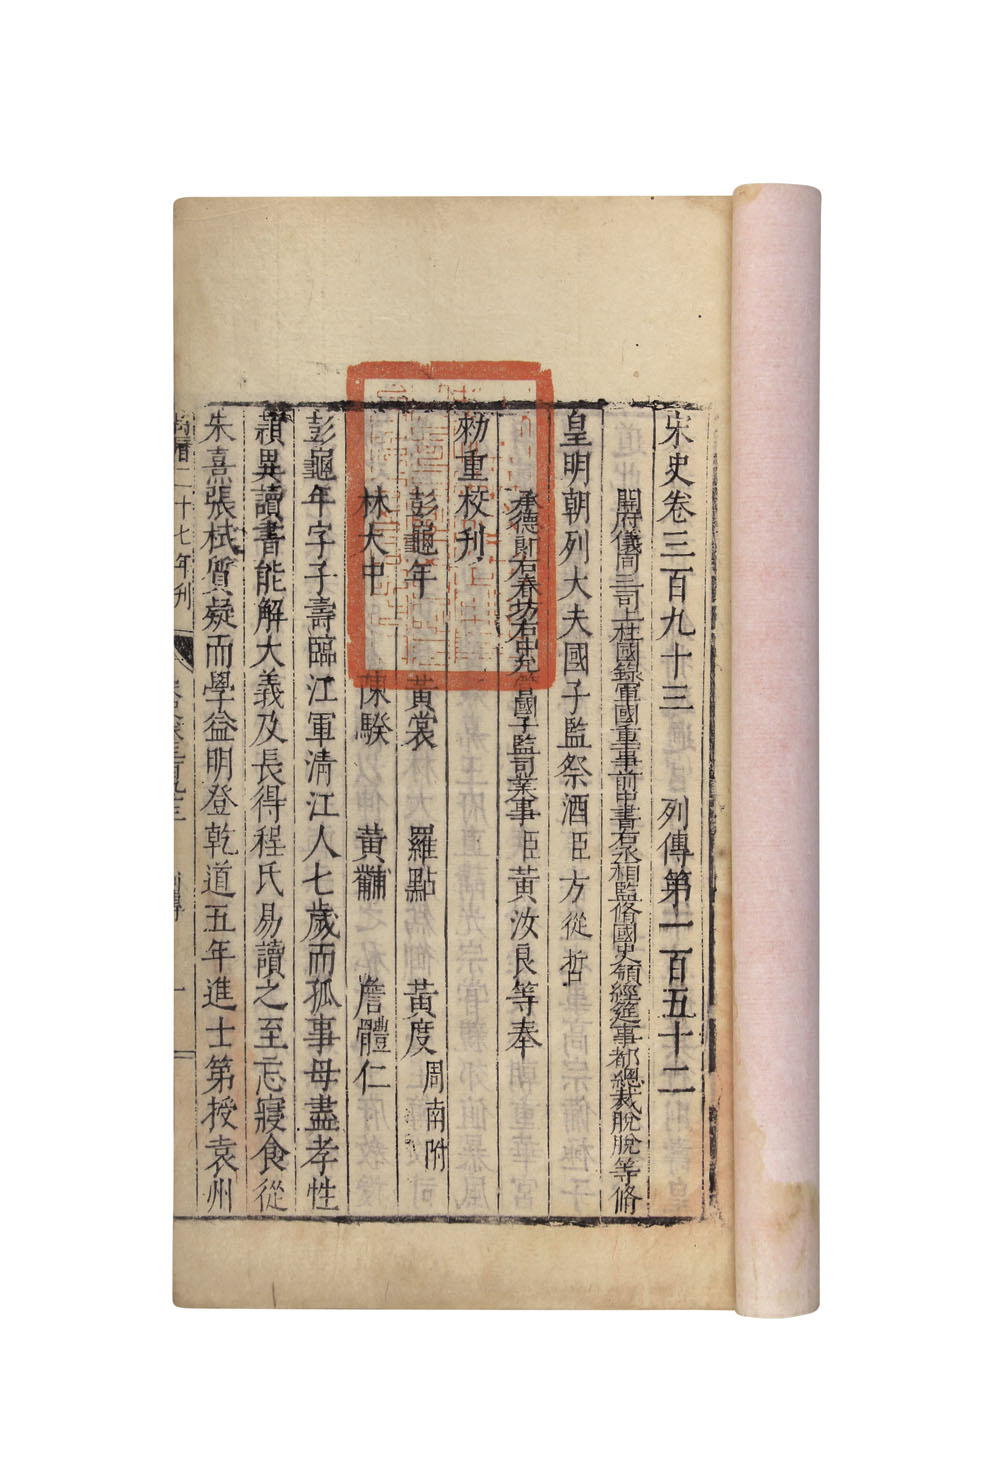 宋史卷三百九十三 列傳第一百五十二
開府儀同三司上柱國錄軍國重事前中書右丞相監脩國史領經筵事都總裁脫脫等脩
皇明朝列大夫國子監祭酒臣方從哲
承德郎右春坊右中允管國子監司業事臣黃汝良等奉
勑重校刊
彭龜年 黃裳 羅點 黃度 周南附
林大中 陳騤 黃黼 詹體仁
彭龜年字子壽臨江軍清江人七歲而孤事母盡孝性
穎異讀書能解大義及長得程氏易讀之至忘寢食從
朱熹張栻質疑而學益明登乾道五年進士第授袁州
萬曆二十七年刊